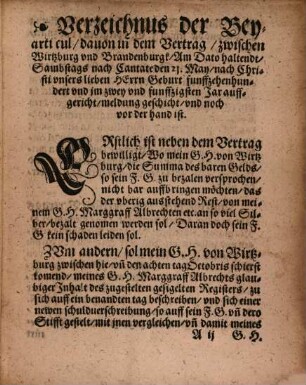 Verzeichnus der Bey-
arti cul/dauon in dem Vertrag/zwischen
Wirtzburg vnd Brandenburgk/Am Dato haltendt/
Sambstags nach Cantate den 21. May/nach Chri-
sti vnsers lieben HErrn Geburt funffzehenhun-
dert vnd im zwey vnd funffzigsten Jar auff-
gericht/meldung geschicht/vnd noch
vor der hand ist.
ERstlich ist neben dem Vertrag
bewilligt/Wo mein G.H.von Wirtz-
burg/die Summa des baren Gelds/
so sein F. G. zu bezalen versprochen/
nicht bar auffbringen möchten/das
der vberig ausstehend Rest/von mei-
nem G.H. Marggraff Albrechten etc.an so viel Sil-
ber/bezalt genomen werden sol/Daran doch sein F.
G kein schaden leiden sol.
ZVm andern/sol mein G.H. von Wirtz-
burg zwischen hie/vñ den achten tag Octobris schierst
komend/meines G.H. Marggraff Albrechts glau-
biger Inhalt des zugestelten gesigelten Registers/zu
sich auff ein benandten tag beschreiben/vnd sich einer
newen schuldverschreibung/so auff sein F.G. vñ dero
Stifft gestelt/mit jnen vergleichen/vñ damit meines
A ij G.H.